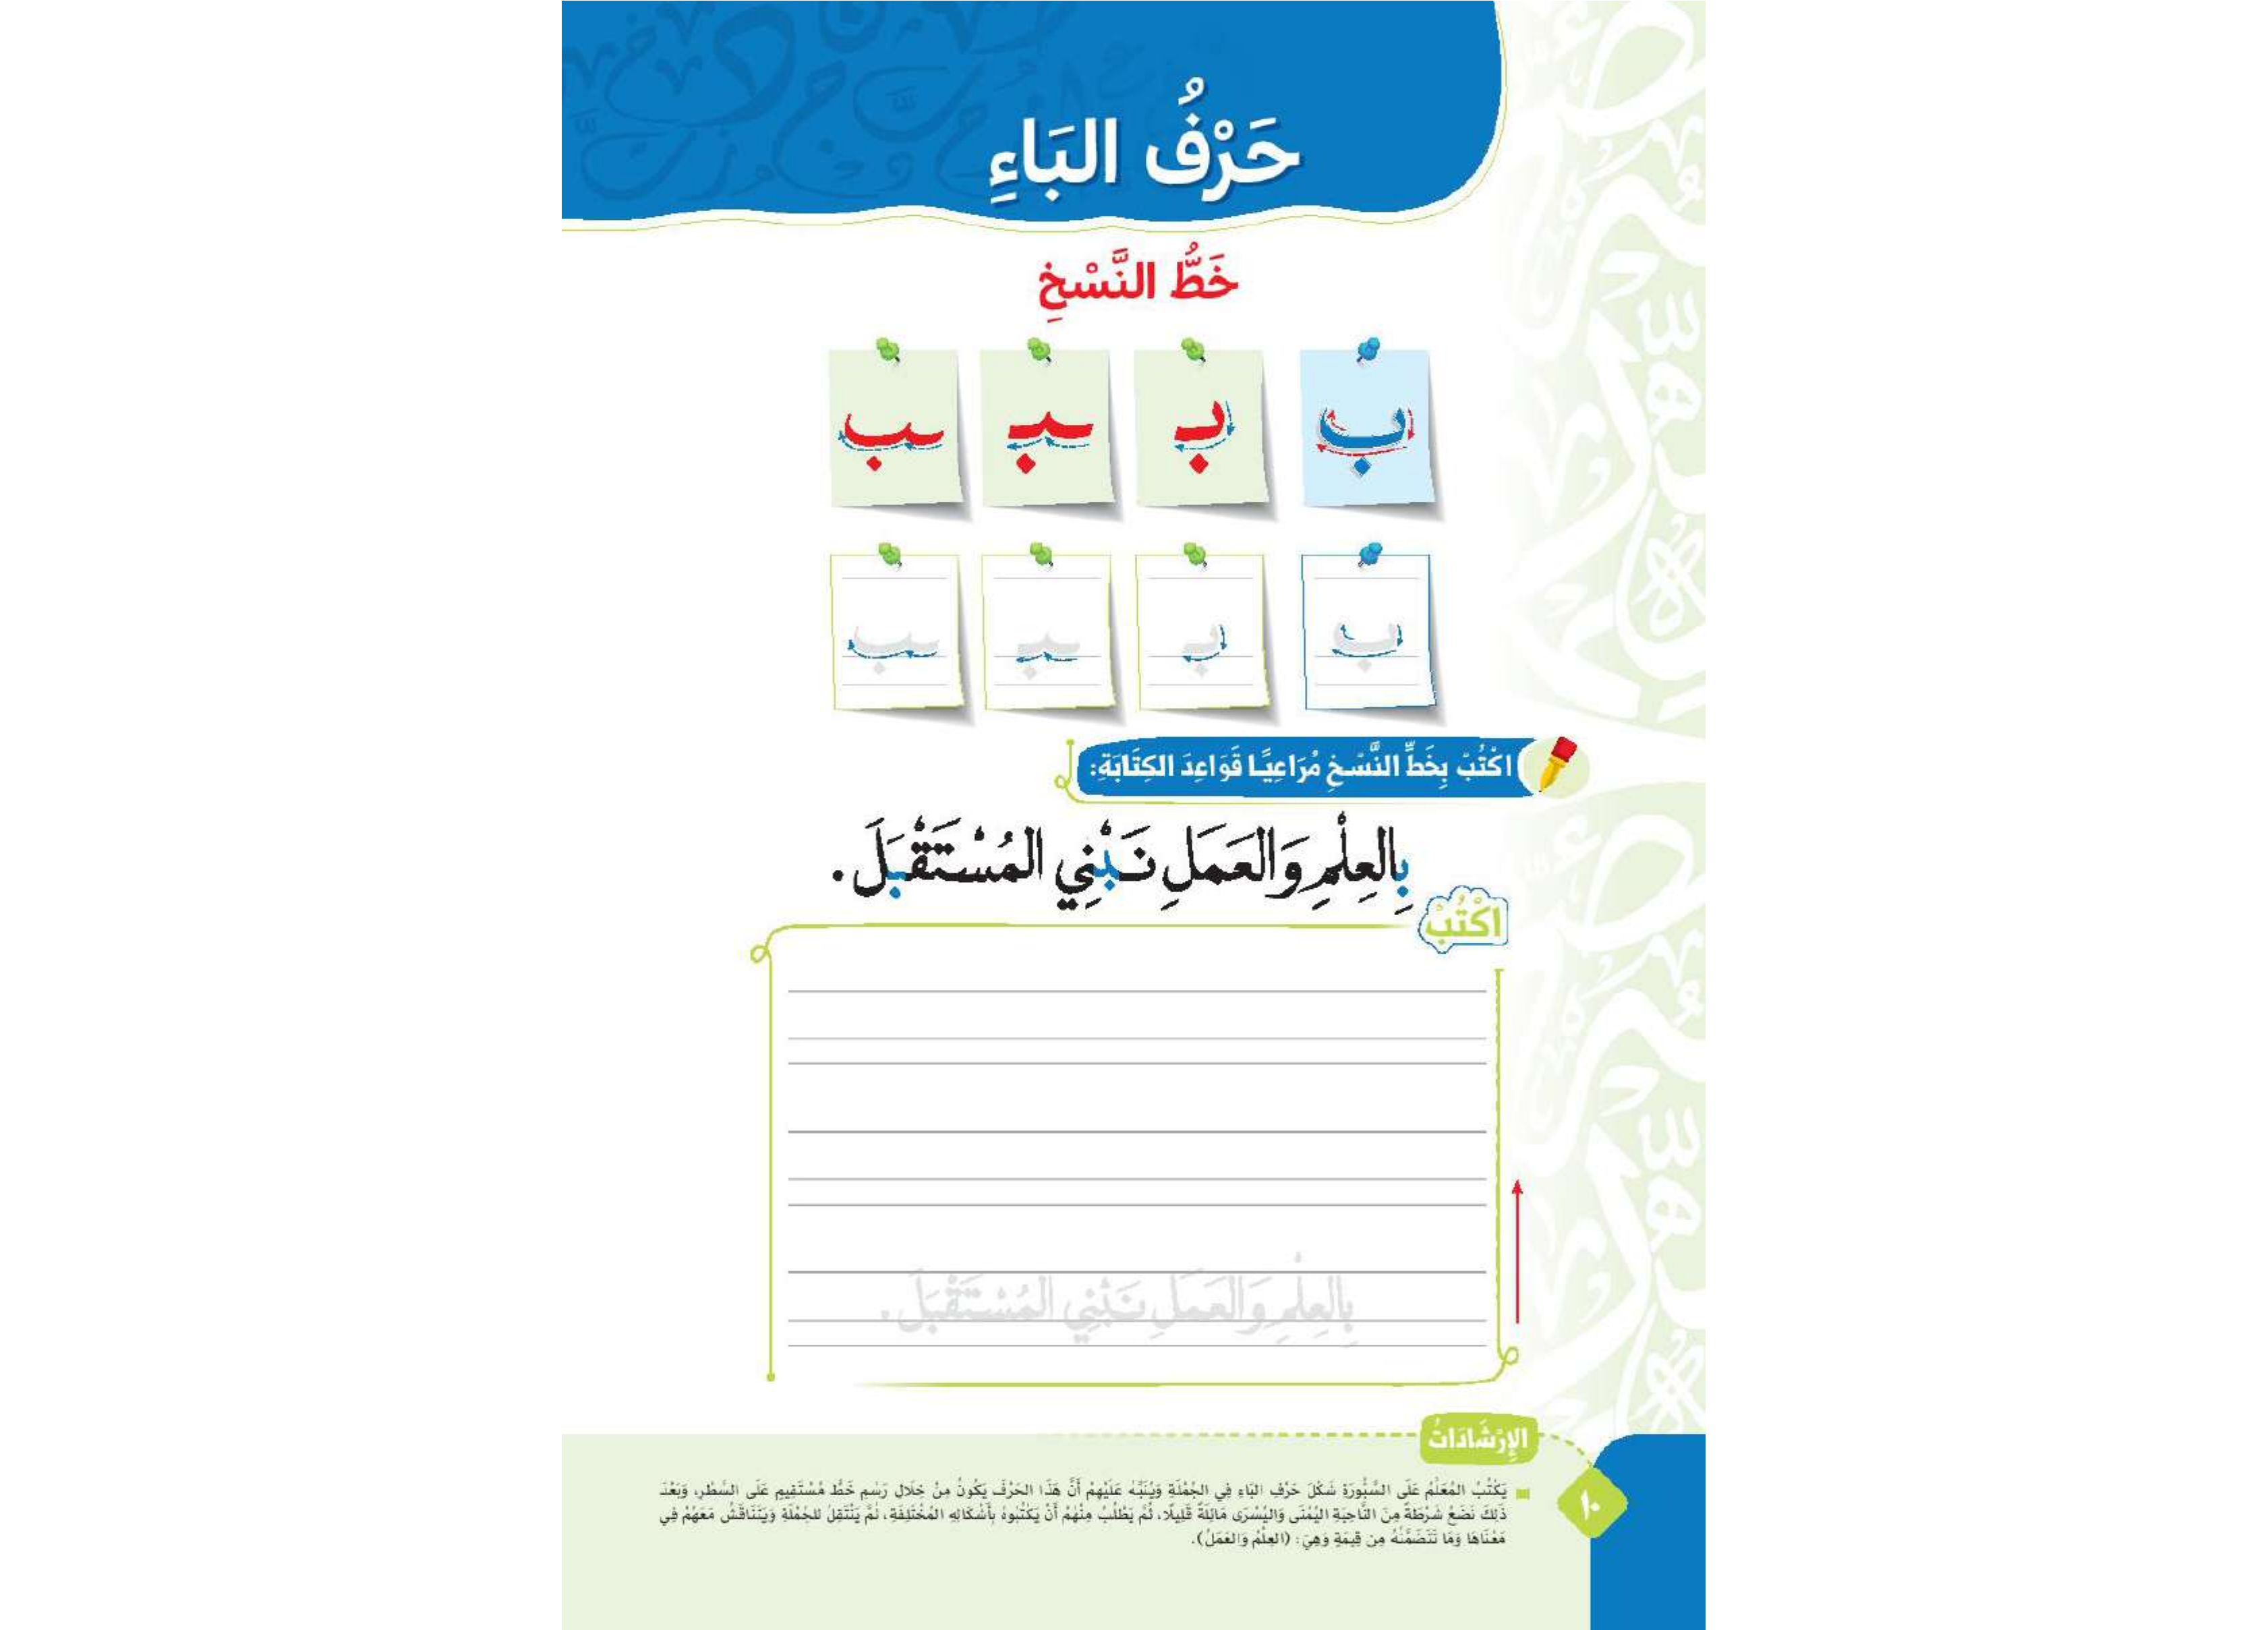 حَرْفُ البَاءِ
خَطُّ النَّسْخِ
ب بـ ـبـ ـب
ب بـ ـبـ ـب
اكْتُبْ بِخَطِّ النَّسْخِ مُرَاعِيًا قَوَاعِدَ الكِتَابَةِ:
بِالعِلْمِ وَالعَمَلِ نَبْنِي المُسْتَقْبَلَ.
اكْتُبْ
بِالعِلْمِ وَالعَمَلِ نَبْنِي المُسْتَقْبَلَ.
الإِرْشَادَاتُ
يَكْتُبُ المُعَلِّمُ عَلَى السَّبُّورَةِ شَكْلَ حَرْفِ البَاءِ فِي الجُمْلَةِ وَيُنَبِّهُ عَلَيْهِمْ أَنَّ هَذَا الحَرْفَ يَكُونُ مِنْ خِلَالِ رَسْمِ خَطٍّ مُسْتَقِيمٍ عَلَى السَّطْرِ، وَبَعْدَ
ذَلِكَ نَضَعُ شَرْطَةً مِنَ النَّاحِيَةِ اليُمْنَى وَاليُسْرَى مَائِلَةً قَلِيلًا، ثُمَّ يَطْلُبُ مِنْهُمْ أَنْ يَكْتُبُوهُ بِأَشْكَالِهِ المُخْتَلِفَةِ، ثُمَّ يَنْتَقِلُ للجُمْلَةِ وَيَتَنَاقَشُ مَعَهُمْ فِي
مَعْنَاهَا وَمَا تَتَضَمَّنُهُ مِن قِيمَةٍ وَهِيَ: (العِلْمُ وَالعَمَلُ).
١٠